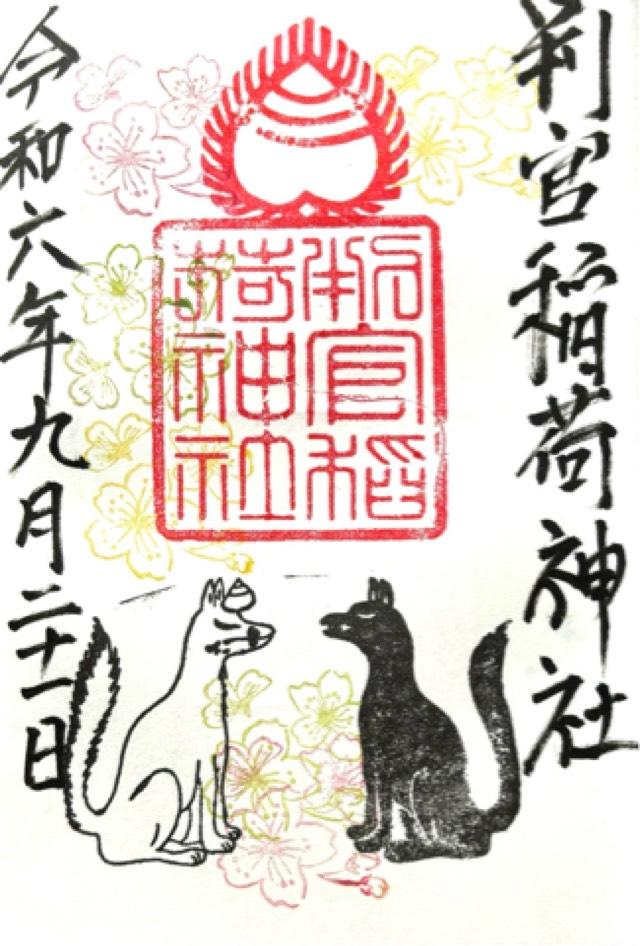 判官稲荷神社
判官稲
荷神社
令和六年九月二十一日